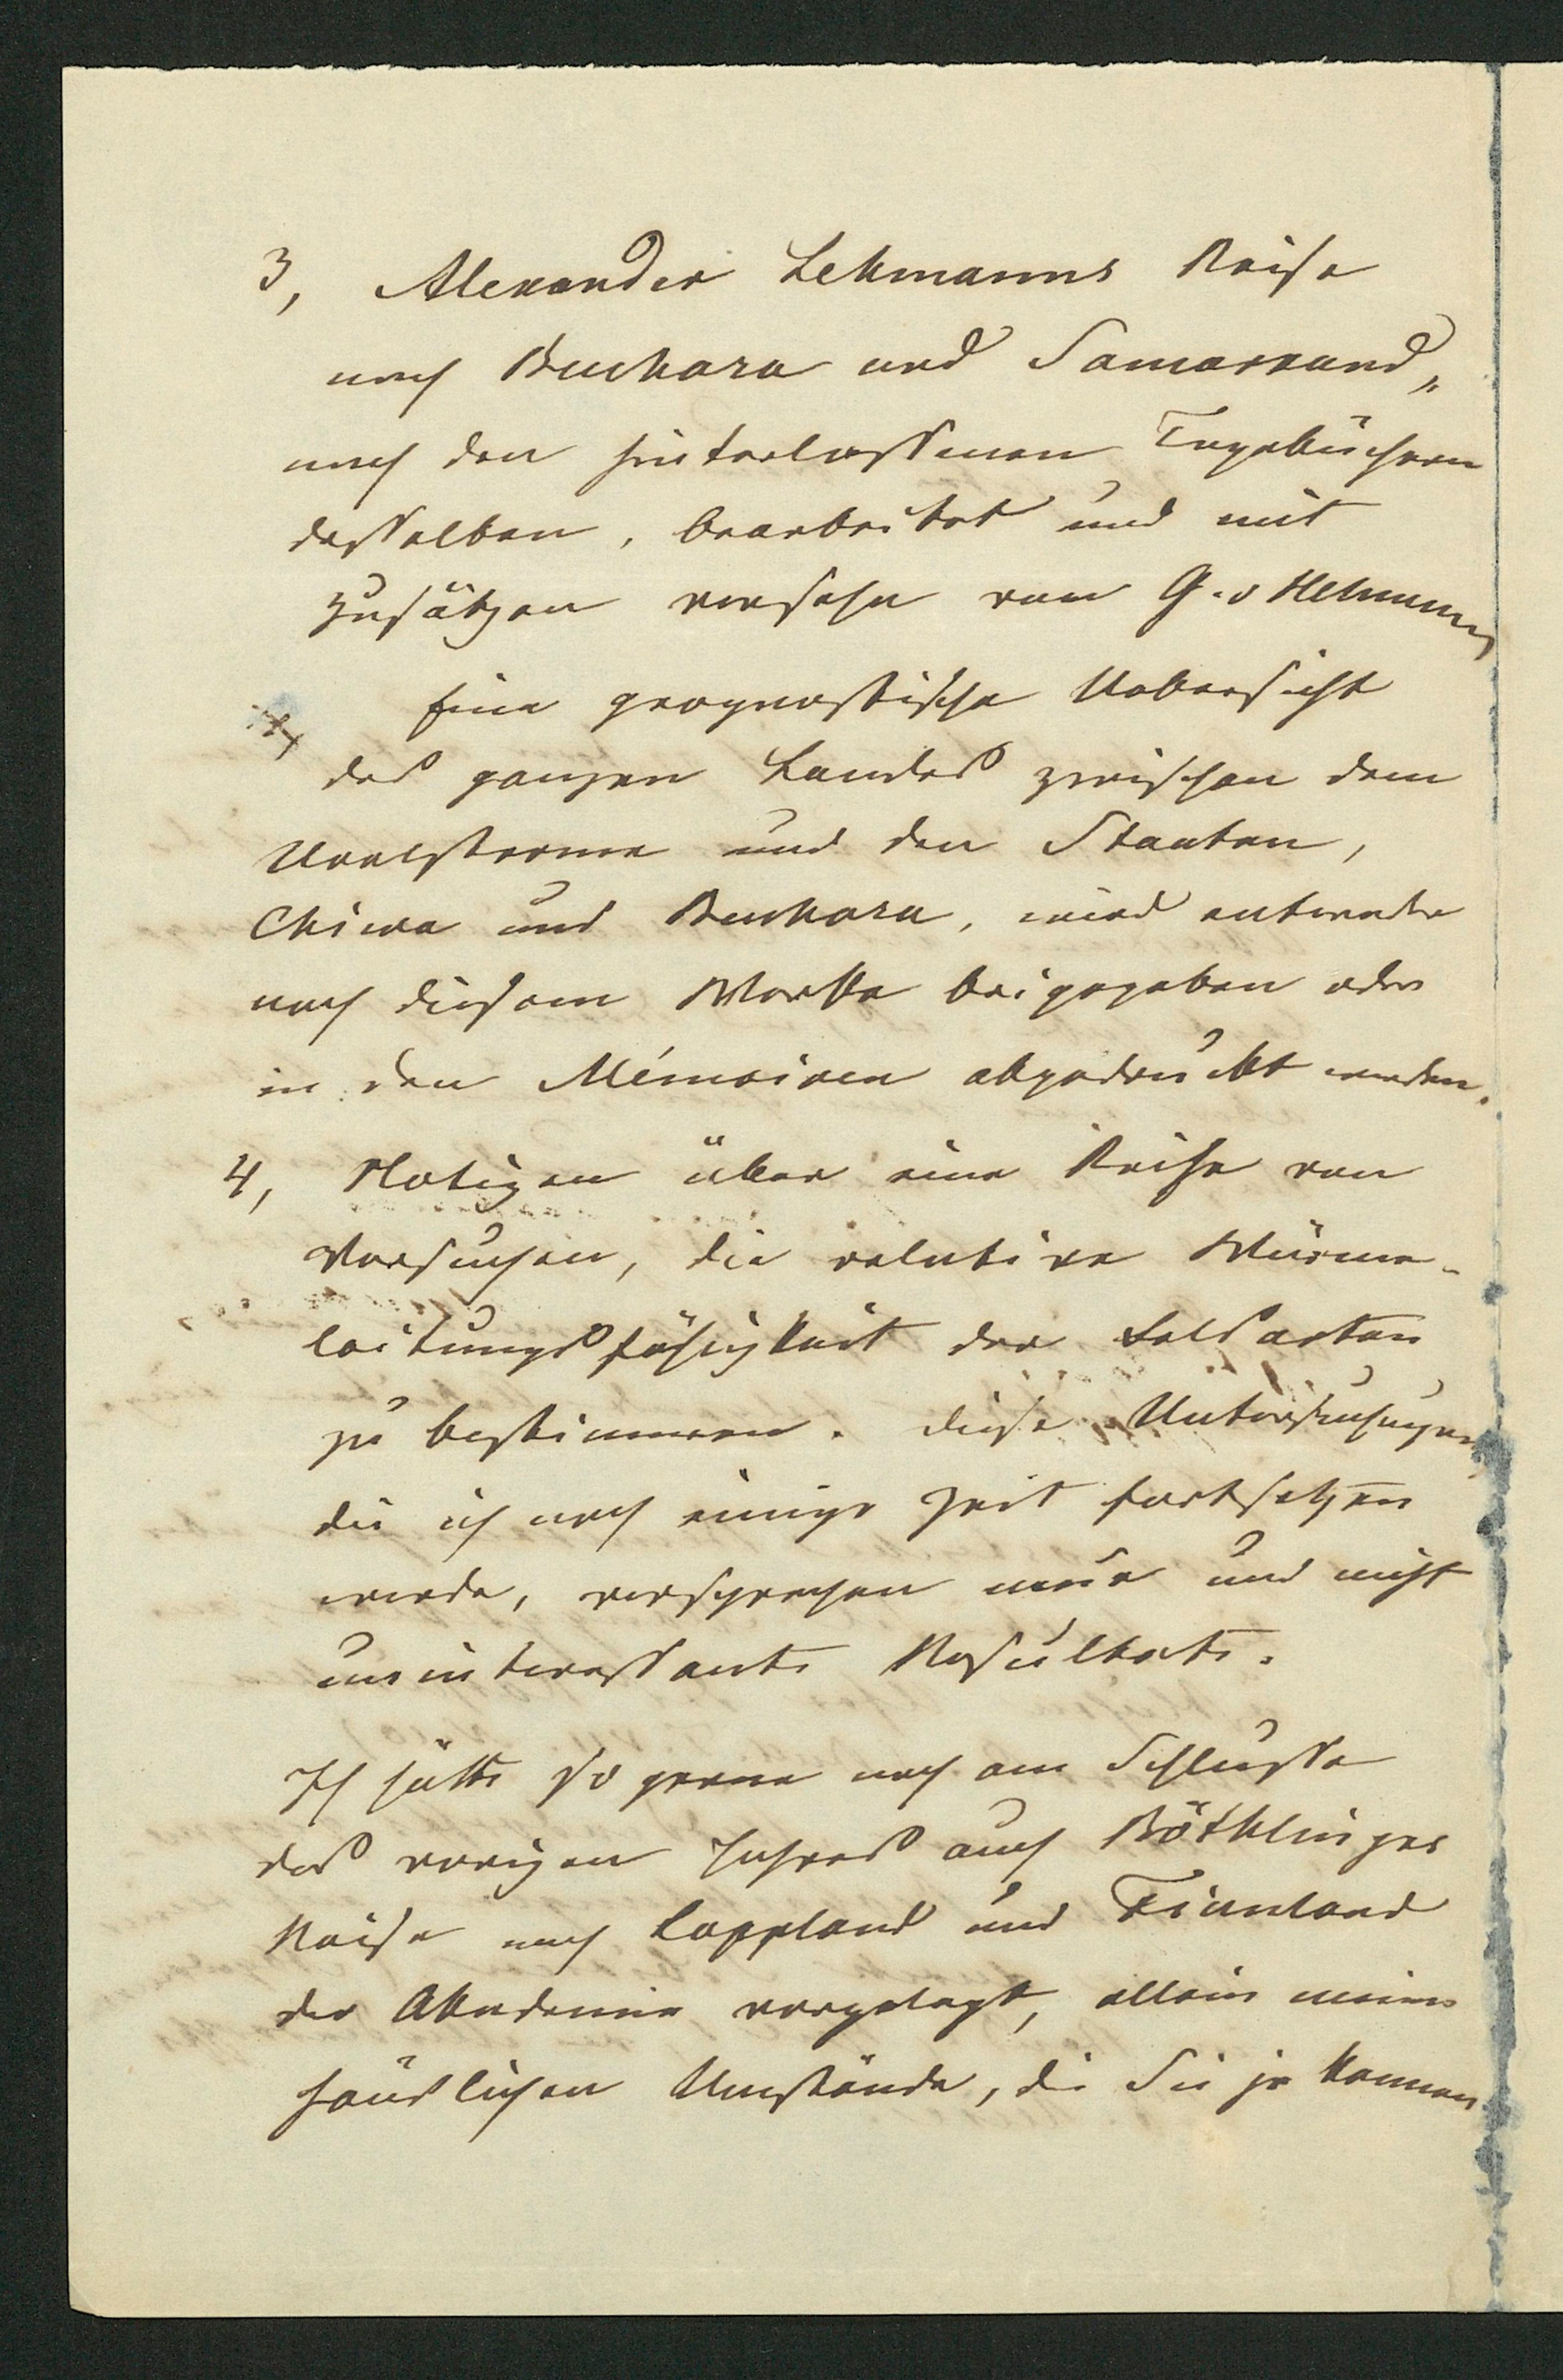 3, Alexander Lehmanns Reise
nach Buchara und Samarkand„
nach den hinterlassenen Tagebüchern
desselben, bearbeitet und mit
Zusätzen versehn von G. v Helmersen
Eine geognostische Uebersicht
des ganzen Landes zwischen dem
Uralstrome und den Staaten,
Chiwa und Buchara, wird entweder
noch diesem Werke beigegeben oder
in den Mémoiren abgedruckt werden.
4, Notizen über eine Reihe von
Versuchen, die relative Wärme-
leitungsfähigkeit der Felsarten
zu bestimmen. Diese Untersuchungen
die ich noch einige Zeit fortsetzen
werde, versprechen neue und nicht
uninteressante Resultate.
Ich hätte so gerne noch am Schlusse
des vorigen Jahres auch Böthlingks
Reise nach Lappland und Finnland
der Akademie vorgelegt, allein meine
häuslichen Umstände, die Sie ja kennen